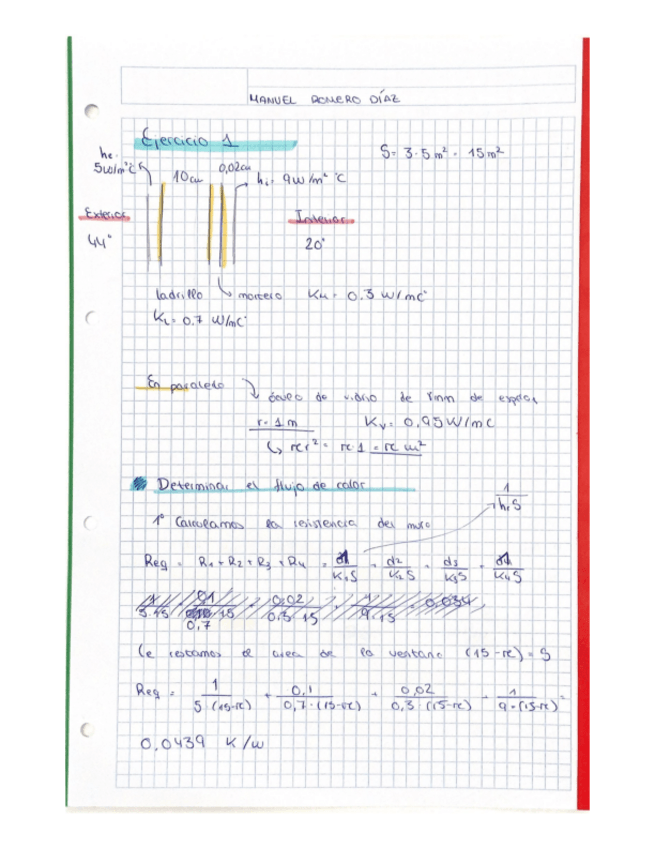 MANUEL ROMERO DÍAZ
Ejercicio 1
S= 3·5 m² = 15 m²
he =
5W/m²ºC
10cm
0,02cm
hi = 9W/m² ºC
Exterior
44°
Interior
20°
ladrillo
mortero KM = 0.3 W/mCº
KL = 0.7 W/mCº
En paralelo
de vidrio de 8mm de espesor
r = 1 m
Kv = 0,95 W/mC
πr² = π·1 = π m²
Determinar el flujo de calor
1/h₁S
1º Calculamos la resistencia del muro
Req = R1 + R2 + R3 + R4 = d1/K1S + d2/K2S + d3/K3S + d4/K4S
Le restamos el area de la ventana (15-π) = S
Req = 1/5·(15-π) + 0,1/0,7·(15-π) + 0,02/0,3·(15-π) + 1/9·(15-π) =
0,0439 K/W